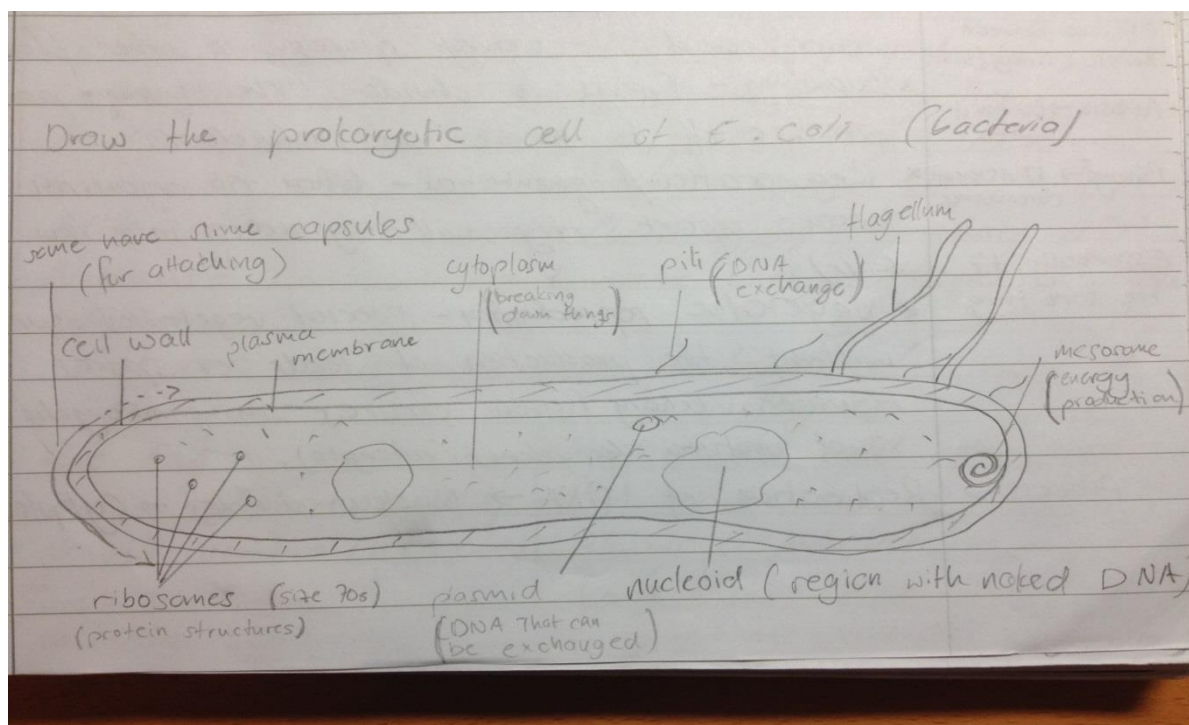 Draw the prokaryotic cell of E. coli (bacteria)
some have slime capsules
(for attaching)
cell wall
plasma
membrane
cytoplasm
(breaking
down things)
pili (DNA
exchange)
flagellum
mesosome
(energy
production)
ribosomes (size 70s)
(protein structures)
plasmid
(DNA That can
be exchanged)
nucleoid (region with naked DNA)